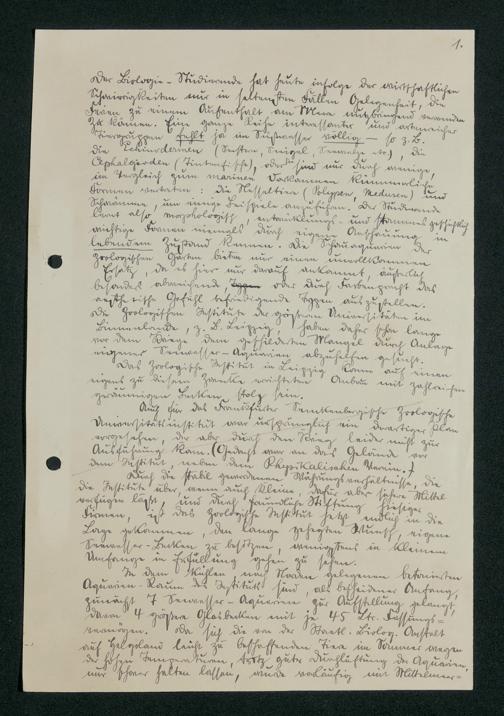 1.
Der Biologie-Studierende hat heute infolge der wirtschaftlichen
Schwierigkeiten nur in seltensten Fällen Gelegenheit, die
Ferien zu einem Aufenthalt am Meere nutzbringend verwenden
zu können. Eine ganze Reihe interessanter und artenreicher
Tiergruppen fehlt ja im Süsswasser völlig — so z.B.
die Echinodermen (Seestern, Seeigel, Seewalze etc), die
Cephalopoden (Tintenfische), oder sind nur durch wenige,
im Vergleich zum marinen Vorkommen kümmerliche
Formen vertreten: die Nesseltiere (Polypen, Medusen) und
Schwämme, um einige Beispiele anzuführen. Der Studierende
lernt also morphologisch, entwicklungs- und stammesgeschichtlich
wichtige Formen niemals durch eigene Anschauung in
lebendem Zustand kennen. Die Schauaquarien der
zoologischen Gärten bieten nur einen unvollkommenen
Ersatz, da es hier nur darauf ankommt, äusserlich
besonders abweichende oder durch Farbenpracht das
aesthetische Gefühl befriedigende Typen auszustellen.
Die Zoologischen Institute der grössten Universitäten im
Binnenlande, z.B. Leipzig, haben daher schon lange
vor dem Kriege dem geschilderten Mangel durch Anlage
eigener Seewasser-Aquarien abzuhelfen gesucht.
Das Zoologische Institut in Leipzig kann auf einen
eigens zu diesem Zwecke errichteten Anbau mit zahlreichen
geräumigen Becken stolz sein.
Auch für das Frankfurter Senckenbergische Zoologische
Universitätsinstitut war ursprünglich ein derartiger Plan
vorgesehen, der aber durch den Krieg leider nicht zur
Ausführung kam. (Gedacht war an das Gelände vor
dem Institut, neben dem Physikalischen Verein.)
Durch die stabil gewordenen Währungsverhältnisse, die
die Institute über, wenn auch kleine, dafür aber sichere Mittel
verfügen lässt und durch freundliche Stiftung hiesiger
Firmen, ist das Zoologische Institut jetzt endlich in die
Lage gekommen, den lange gehegten Wunsch, eigene
Seewasser-Becken zu besitzen, wenigstens in kleinem
Umfange in Erfüllung gehen zu sehen.
In dem kühlen nach Norden gelegenen betonierten
Aquarien-Raum des Instituts sind, als bescheidener Anfang,
zunächst 7 Seewasser-Aquarien zur Aufstellung gelangt,
davon 4 grössere Glasbecken mit je 45 Ltr. Fassungs-
vermögen. Da sich die von der Staatl. Biolog. Anstalt
auf Helgoland leicht zu beschaffenden Tiere im Sommer wegen
der hohen Temperaturen, trotz guter Durchlüftung der Aquarien,
nur schwer halten lassen, wurde vorläufig mit Mittelmeer-